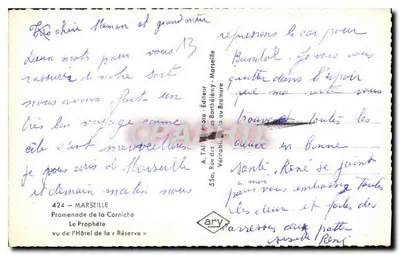 chère Maman et grand mère
Deux mots pour vous 13
rassurer de notre sort
nous avons fait un
très bon voyage comme
côte c'est merveilleux
je vous écris de Marseille
et demain matin nous
424 - MARSEILLE
Promenade de la Corniche
Le Prophète
vu de l'Hôtel de la « Réserve »
A. TA Photo-Éditeur
55a, Rue des Barthélémy - Marseille
Véritable au Bromure
ary
reprenons le car pour
Bandol. Je vais vous
quitter dans l'espoir
que ma carte vous
trouve toutes les
deux en bonne
santé. René se joint
à moi
pour vous embrasser toutes
les deux et faites des
caresses aux
René